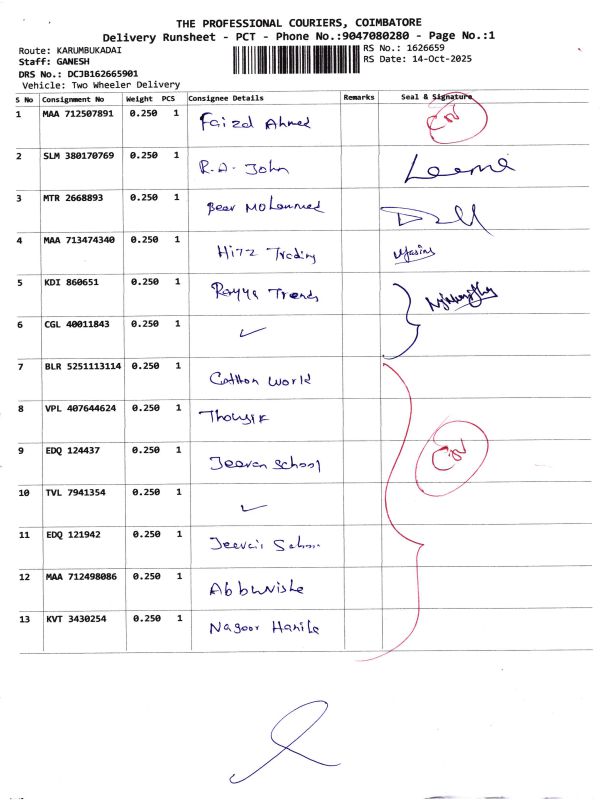 THE PROFESSIONAL COURIERS, COIMBATORE
Delivery Runsheet - PCT - Phone No.:9047080280 - Page No.:1
Route: KARUMBUKADAI
RS No.: 1626659
Staff: GANESH
RS Date: 14-Oct-2025
DRS No.: DCJB162665901
Vehicle: Two Wheeler Delivery
S No Consignment No Weight PCS Consignee Details Remarks Seal & Signature
1 MAA 712507891 0.250 1 Faizal Ahmed
2 SLM 380170769 0.250 1 R.A. John
3 MTR 2668893 0.250 1 Beer Mohammed
4 MAA 713474340 0.250 1 Hizz Trading
5 KDI 860651 0.250 1 Trends
6 CGL 40011843 0.250 1 ✓
7 BLR 5251113114 0.250 1 Cotton World
8 VPL 407644624 0.250 1
9 EDQ 124437 0.250 1 Jeevan School
10 TVL 7941354 0.250 1 ✓
11 EDQ 121942 0.250 1
12 MAA 712498086 0.250 1
13 KVT 3430254 0.250 1 Nagoor